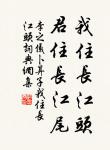 我住長江頭
君住長江尾
李之儀卜算子我住長
江頭詞典網集